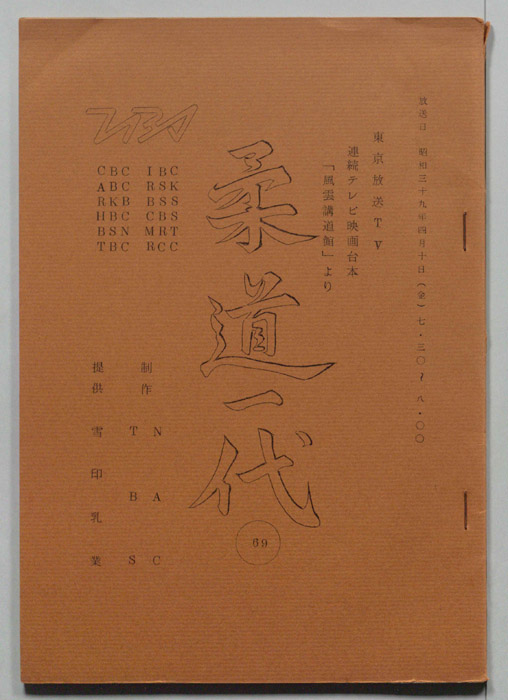 放送日 昭和三十九年四月十日(金)七・三〇〜八・〇〇
東京放送TV
連続テレビ映画台本
「風雲講道館」より
柔道一代
69
CBC IBC
ABC RSK
RKB BSS
HBC CBS
BSN MRT
TBC RCC
制作 NAC
TBS
提供 雪印乳業